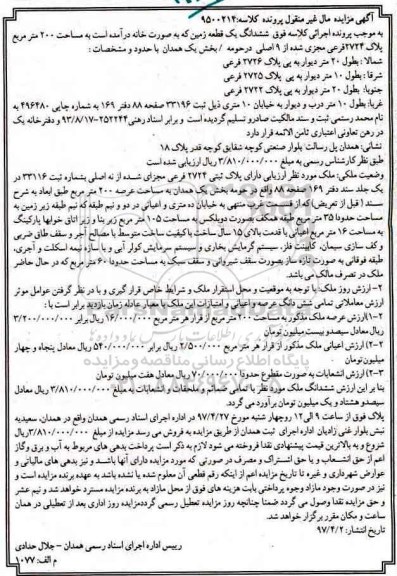 آگهی مزایده مال غیر منقول پرونده کلاسه:۹۵۰۰۲۱۴
به موجب پرونده اجرائی کلاسه فوق ششدانگ یک قطعه زمین که به صورت خانه درآمده است به مساحت ۲۰۰ متر مربع
پلاک ۲۷۲۴فرعی مجزی شده از ۹ اصلی درحومه / بخش یک همدان با حدود و مشخصات :
شمالا: بطول ۲۰ متر دیوار به پی پلاک ۲۷۲۶ فرعی
شرقا: بطول ۱۰ متر دیوار به پی پلاک ۲۷۲۵ فرعی
جنوبا: بطول ۲۰ متر دیوار به پی پلاک ۲۷۲۲ فرعی
غربا: بطول ۱۰ متر درب و دیوار به خیابان ۱۰ متری ذیل ثبت ۳۳۱۹۶ صفحه ۸۸ دفتر ۱۶۹ به شماره چاپی ۴۹۶۴۸۰ به
نام محمد رستمی ثبت و سند مالکیت صادر و تسلیم گردیده است و برابر اسناد رهنی ۲۵۲۲۴۴-۹۳/۸/۱۷ و دفترخانه یک
در رهن تعاونی اعتباری ثامن الائمه قرار دارد
نشانی: همدان پل رسالت بلوار صنعتی کوچه شقایق کوچه قدر پلاک ۱۸
طبق نظر کارشناس رسمی به مبلغ ۳/۸۱۰/۰۰۰/۰۰۰ ریال ارزیابی شده است
وضعیت ملکی: ملک مورد نظر ارزیابی دارای پلاک ثبتی ۲۷۲۴ فرعی مجزای شده از نه اصلی بشماره ثبت ۳۳۱۱۶ در
یک جلد سند دفتر ۱۶۹ صفحه ۸۸ واقع در حومه بخش یک همدان به مساحت عرصه ۲۰۰ متر مربع طبق ابعاد به شرح
سند ( قبل از تعریض) که از قسمت غرب منتهی به خیابان ده متری و اعیانی در دو و نیم طبقه که نیم طبقه زیر زمین به
مساحت حدودا ۳۵ متر مربع طبقه همکف بصورت دوبلکس به مساحت ۱۰۵ متر مربع زیر بنا و زیر اتاق خوابها پارکینگ
به مساحت ۱۶ متر مربع اعیانی با قدمت بالای ۱۵ سال ساخت باکیفیت ساخت متوسط با مصالح آجر و سقف طاق ضربی
و کف سازی سیمان، کابینت فلز، سیستم گرمایش بخاری و سیستم سرمایش کولر آبی و با سازه نیمه اسکلت و آجری،
طبقه فوقانی به صورت تازه ساز بصورت سقف شیروانی و سقف سبک به مساحت حدودا ۶۰ متر مربع که در حال حاضر
ملک در تصرف مالک می باشد.
۲- ارزش روز ملک: با توجه به موقعیت و محل استقرار ملک و شرایط خاص قرار گیری و با در نظر گرفتن عوامل موثر
ارزش معاملاتی تمامی شش دانگ عرصه و اعیانی و امتیازات این ملک با معیار عادله زمان بازدید برابر است با :
۲-۱)ارزش عرصه ملک مذکور به مساحت ۲۰۰ متر مربع از قرار هر متر مربع ۱۶/۰۰۰/۰۰۰ ریال برابر ۳/۲۰۰/۰۰۰/۰۰۰
ریال معادل سیصدو بیست میلیون تومان
۲-۲) ارزش اعیانی ملک مذکور از قرار هر متر مربع ۲/۵۰۰/۰۰۰ ریال برابر ۵۴۰/۰۰۰/۰۰۰ ریال معادل پنجاه و چهار
میلیون تومان
۲-۳) ارزش انشعابات به صورت مقطوع حدودا ۷۰/۰۰۰/۰۰۰ ریال معادل هفت میلیون تومان
بنا بر این ارزش ششدانگ ملک مورد نظر با تمامی ضمائم و ملحقات و انشعابات به مبلغ ۳/۸۱۰/۰۰۰/۰۰۰ ریال معادل
سیصدو هشتاد و یک میلیون تومان برآورد می گردد.
پلاک فوق از ساعت ۹ الی ۱۲ روز چهار شنبه مورخ ۹۷/۴/۲۷ در اداره اجرای اسناد رسمی همدان واقع در همدان، سعیدیه
نبش بلوار غنی زادیان اداره اجرای ثبت همدان از طریق مزایده به فروش می رسد مزایده از مبلغ ۳/۸۱۰/۰۰۰/۰۰۰ریال
شروع و به بالاترین قیمت پیشنهادی نقدا فروخته می شود لازم به ذکر است پرداخت بدهی های مربوط به آب و برق وگاز
اعم از حق انشعاب و یا حق اشتراک و مصرف در صورتی که مورد مزایده دارای آنها باشد و نیز بدهی های مالیاتی و
عوارض شهرداری و غیره تا تاریخ مزایده اعم از اینکه رقم قطعی آن معلوم شده یا نشده باشد به عهده برنده مزایده است و
نیز در صورت وجود مازاد وجوه پرداختی بابت هزینه های فوق از محل مازاد به برنده مزایده مسترد خواهد شد و نیم عشر
و حق مزایده نقدا وصول می گردد ضمنا چنانچه روز مزایده تعطیل رسمی گردد مزایده روز اداری بعد از تعطیلی در همان
ساعت و مکان مقرر برگزار خواهد شد.
تاریخ انتشار: ۹۷/۴/۲
رییس اداره اجرای اسناد رسمی همدان - جلال حدادی
م الف: ۱۰۷۷